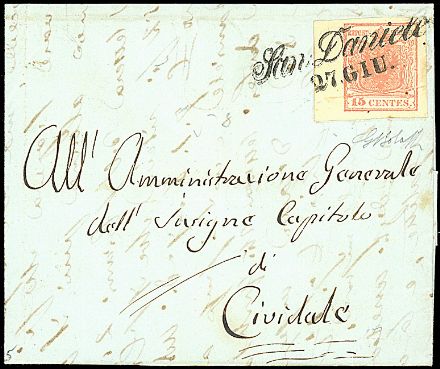 San Daniele
27. GIU.
15 CENTES.
All' Amministrazione Generale
dell' Insigne Capitolo
di
Cividale